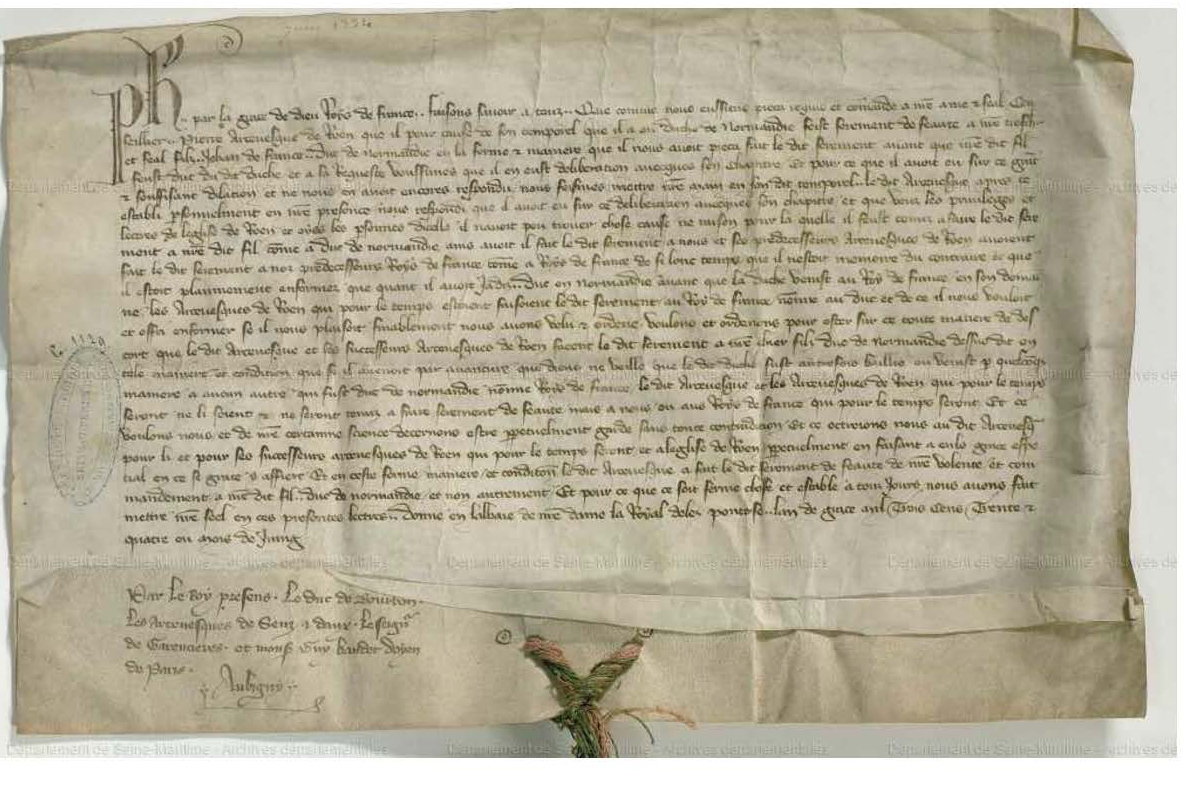 Juin 1334
Ph. par la grace de dieu Roys de France. faisons savoir a touz. Que comme nous eussiens pieca requis et comande a nre ame e feal Con
seillier. Pierre Arcevesque de Roen que il pour cause de son temporel que il a ou duche de Normandie feist serement de feaute a nre treschr
et feal filz. Jehan de France. duc de Normandie en la forme e maniere que il nous avoit pieca fait le dit serement avant que nre dit fil
feust duc du dit duche et a sa requeste vousissmes que il en eust deliberation avecques son chapitre Et pour ce que il avoit eu sur ce grant
e souffisant dilacion et ne nous en avoit encores respondu nous feismes mettre nre main en son dit temporel. le dit Arcevesque apres ce
establi psonnelment en nre presence nous respondi que il avoit eu sur ce deliberacion avecques son chapitre et que veuz les privileges et
lectres de leglise de Roen et oyes les psonnes dicelle il navoit peu trouver chose cause ne raison pour la quelle il feust tenuz a faire le dit sere
ment a nre dit fil come a duc de normandie ains avoit il fait le dit serement a nous et ses predecesseurs Arcevesques de Roen avoient
fait le dit serement a noz predecesseurs Roys de france come a Roys de france de si lonc temps que il nestoit memoire du contraire Et que
il estoit plainnement enformez que quant il avoit Jadis duc en Normandie avant que la duche venist au Roy de france en son demai
ne les Arcevesques de Roen qui pour le temps estoient faisoient le dit serement au Roy de france nomie au duc et de ce il nous vouloit
et offri enformer se il nous plaisoit finablement nous avons volu e ordene voulons et ordenons pour oster sur ce toute matiere de des
cort que le dit Arcevesque et ses successeurs Arcevesques de Roen facent le dit serement a nre cher filz duc de Normandie dessus dit en
tele maniere et condition que se il avenoit par avanture que diens ne veille que le dit duche fust autrefois bailliee ou venist p quelconq
maniere a aucun autre qui fust duc de normandie nomie Roys de france le dit Arcevesque et les Arcevesques de Roen qui pour le temps
seront ne li soient e ne seront tenuz a faire serement de feaute mais a nous ou aus Roys de france qui pour le temps seront. Et ce
voulons nous et de nre certainne science decernons estre ppetuelment garde sans toute contradicion Et ce octroions nous au dit Arcevesq
pour li et pour ses successeurs arcevesques de Roen qui pour le temps seront et a leglise de Roen ppetuelment en faisant a eulx grace espe
cial en ce se grace y affiert Et en ceste forme maniere et condition le dit Arcevesque a fait le dit serement de feaute de nre volente et com
mandement a nre dit fil. duc de normandie et non autrement Et pour ce que ce soit ferme chose et estable a touz Jours nous avons fait
mettre nre seel en ces presentes lectres. Donne en labbaie de nre dame la Royal delez pontoise. lan de grace mil Trois Cens Trente e
quatre ou mois de Juing
Par le Roy presens. Le duc de Bourbon.
Les Arcevesques de Senz e daux. Le seigr
de Garencieres. et mons Guy Baudet doyen
de Paris.
Aubigny
G. 1120
Département de Seine-Maritime - Archives départementales